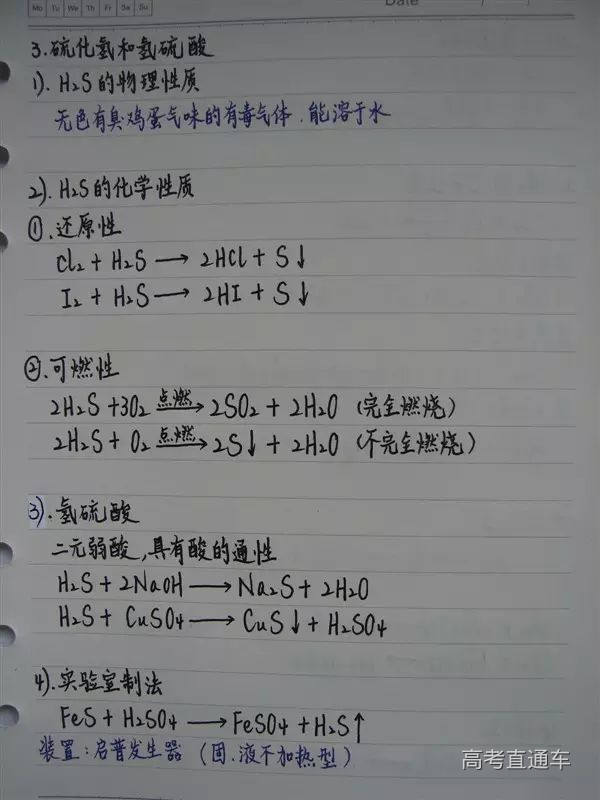 Mo Tu We Th Fr Sa Su
Date
3.硫化氢和氢硫酸
1). H₂S的物理性质
无色有臭鸡蛋气味的有毒气体.能溶于水
2). H₂S的化学性质
①.还原性
Cl₂ + H₂S → 2HCl + S↓
I₂ + H₂S → 2HI + S↓
②.可燃性
2H₂S +3O₂ 点燃→ 2SO₂ + 2H₂O (完全燃烧)
2H₂S + O₂ 点燃→ 2S↓ + 2H₂O (不完全燃烧)
3).氢硫酸
二元弱酸,具有酸的通性
H₂S + 2NaOH → Na₂S + 2H₂O
H₂S + CuSO₄ → CuS↓ + H₂SO₄
4).实验室制法
FeS + H₂SO₄ → FeSO₄ + H₂S↑
装置:启普发生器 (固.液不加热型)
高考直通车